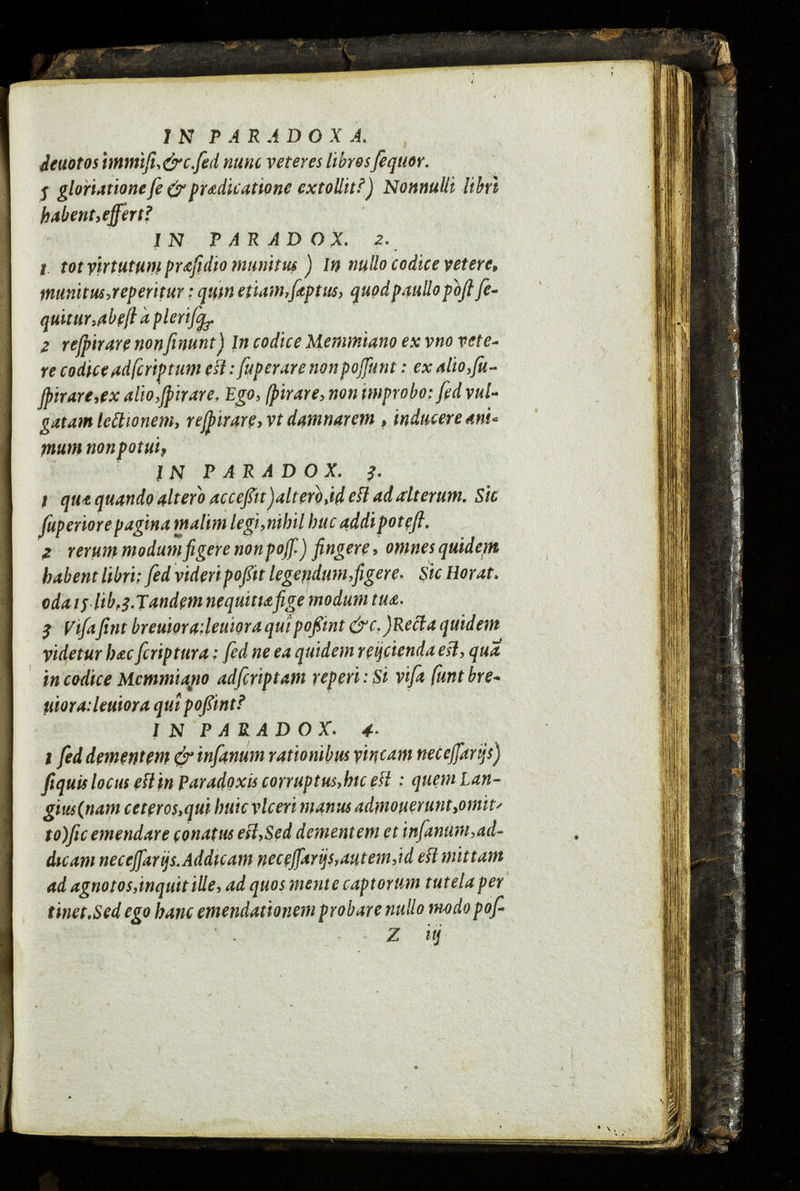 IN PARADOXA.
deuotos immisi, &c. sed nunc veteres libros sequor.
5 gloriatione se & prædicatione extollit?) Nonnulli libri
habent, effert?
IN PARADOX. 2.
1 tot virtutum præsidio munitus ) In nullo codice vetere,
munitus, reperitur : quin etiam, sæptus, quod paullo pòst se-
quitur, abest à plerisq;.
2 respirare non sinunt) In codice Memmiano ex vno vete-
re codice adscriptum est : superare non possunt : ex alio, su-
spirare, ex alio, spirare. Ego, spirare, non improbo: sed vul-
gatam lectionem, respirare, vt damnarem , inducere ani-
mum non potui,
IN PARADOX. 3.
1 quæ quando altero accessit)alterò, id est ad alterum. Sic
superiore pagina malim legi, nihil huc addi potest.
2 rerum modum figere non poss.) fingere, omnes quidem
habent libri: sed videri possit legendum, figere. Sic Horat.
oda 15 lib. 3. Tandem nequitiæ fige modum tuæ.
3 Visa sint breuiora: leuiora qui possint &c. )Recta quidem
videtur hæc scriptura : sed ne ea quidem reijcienda est, quã
in codice Memmiano adscriptam reperi : Si visa sunt bre-
uiora: leuiora qui possint?
IN PARADOX. 4.
1 sed dementem & insanum rationibus vincam necessarijs)
siquis locus est in Paradoxis corruptus, hic est : quem Lan-
gius(nam ceteros, qui huic vlceri manus admouerunt, omit-
to)sic emendare conatus est, Sed dementem et insanum, ad-
dicam necessarijs. Addicam necessarijs, autem, id est mittam
ad agnotos, inquit ille, ad quos mente captorum tutela per
tinet. Sed ego hanc emendationem probare nullo modo pos-
Z iij